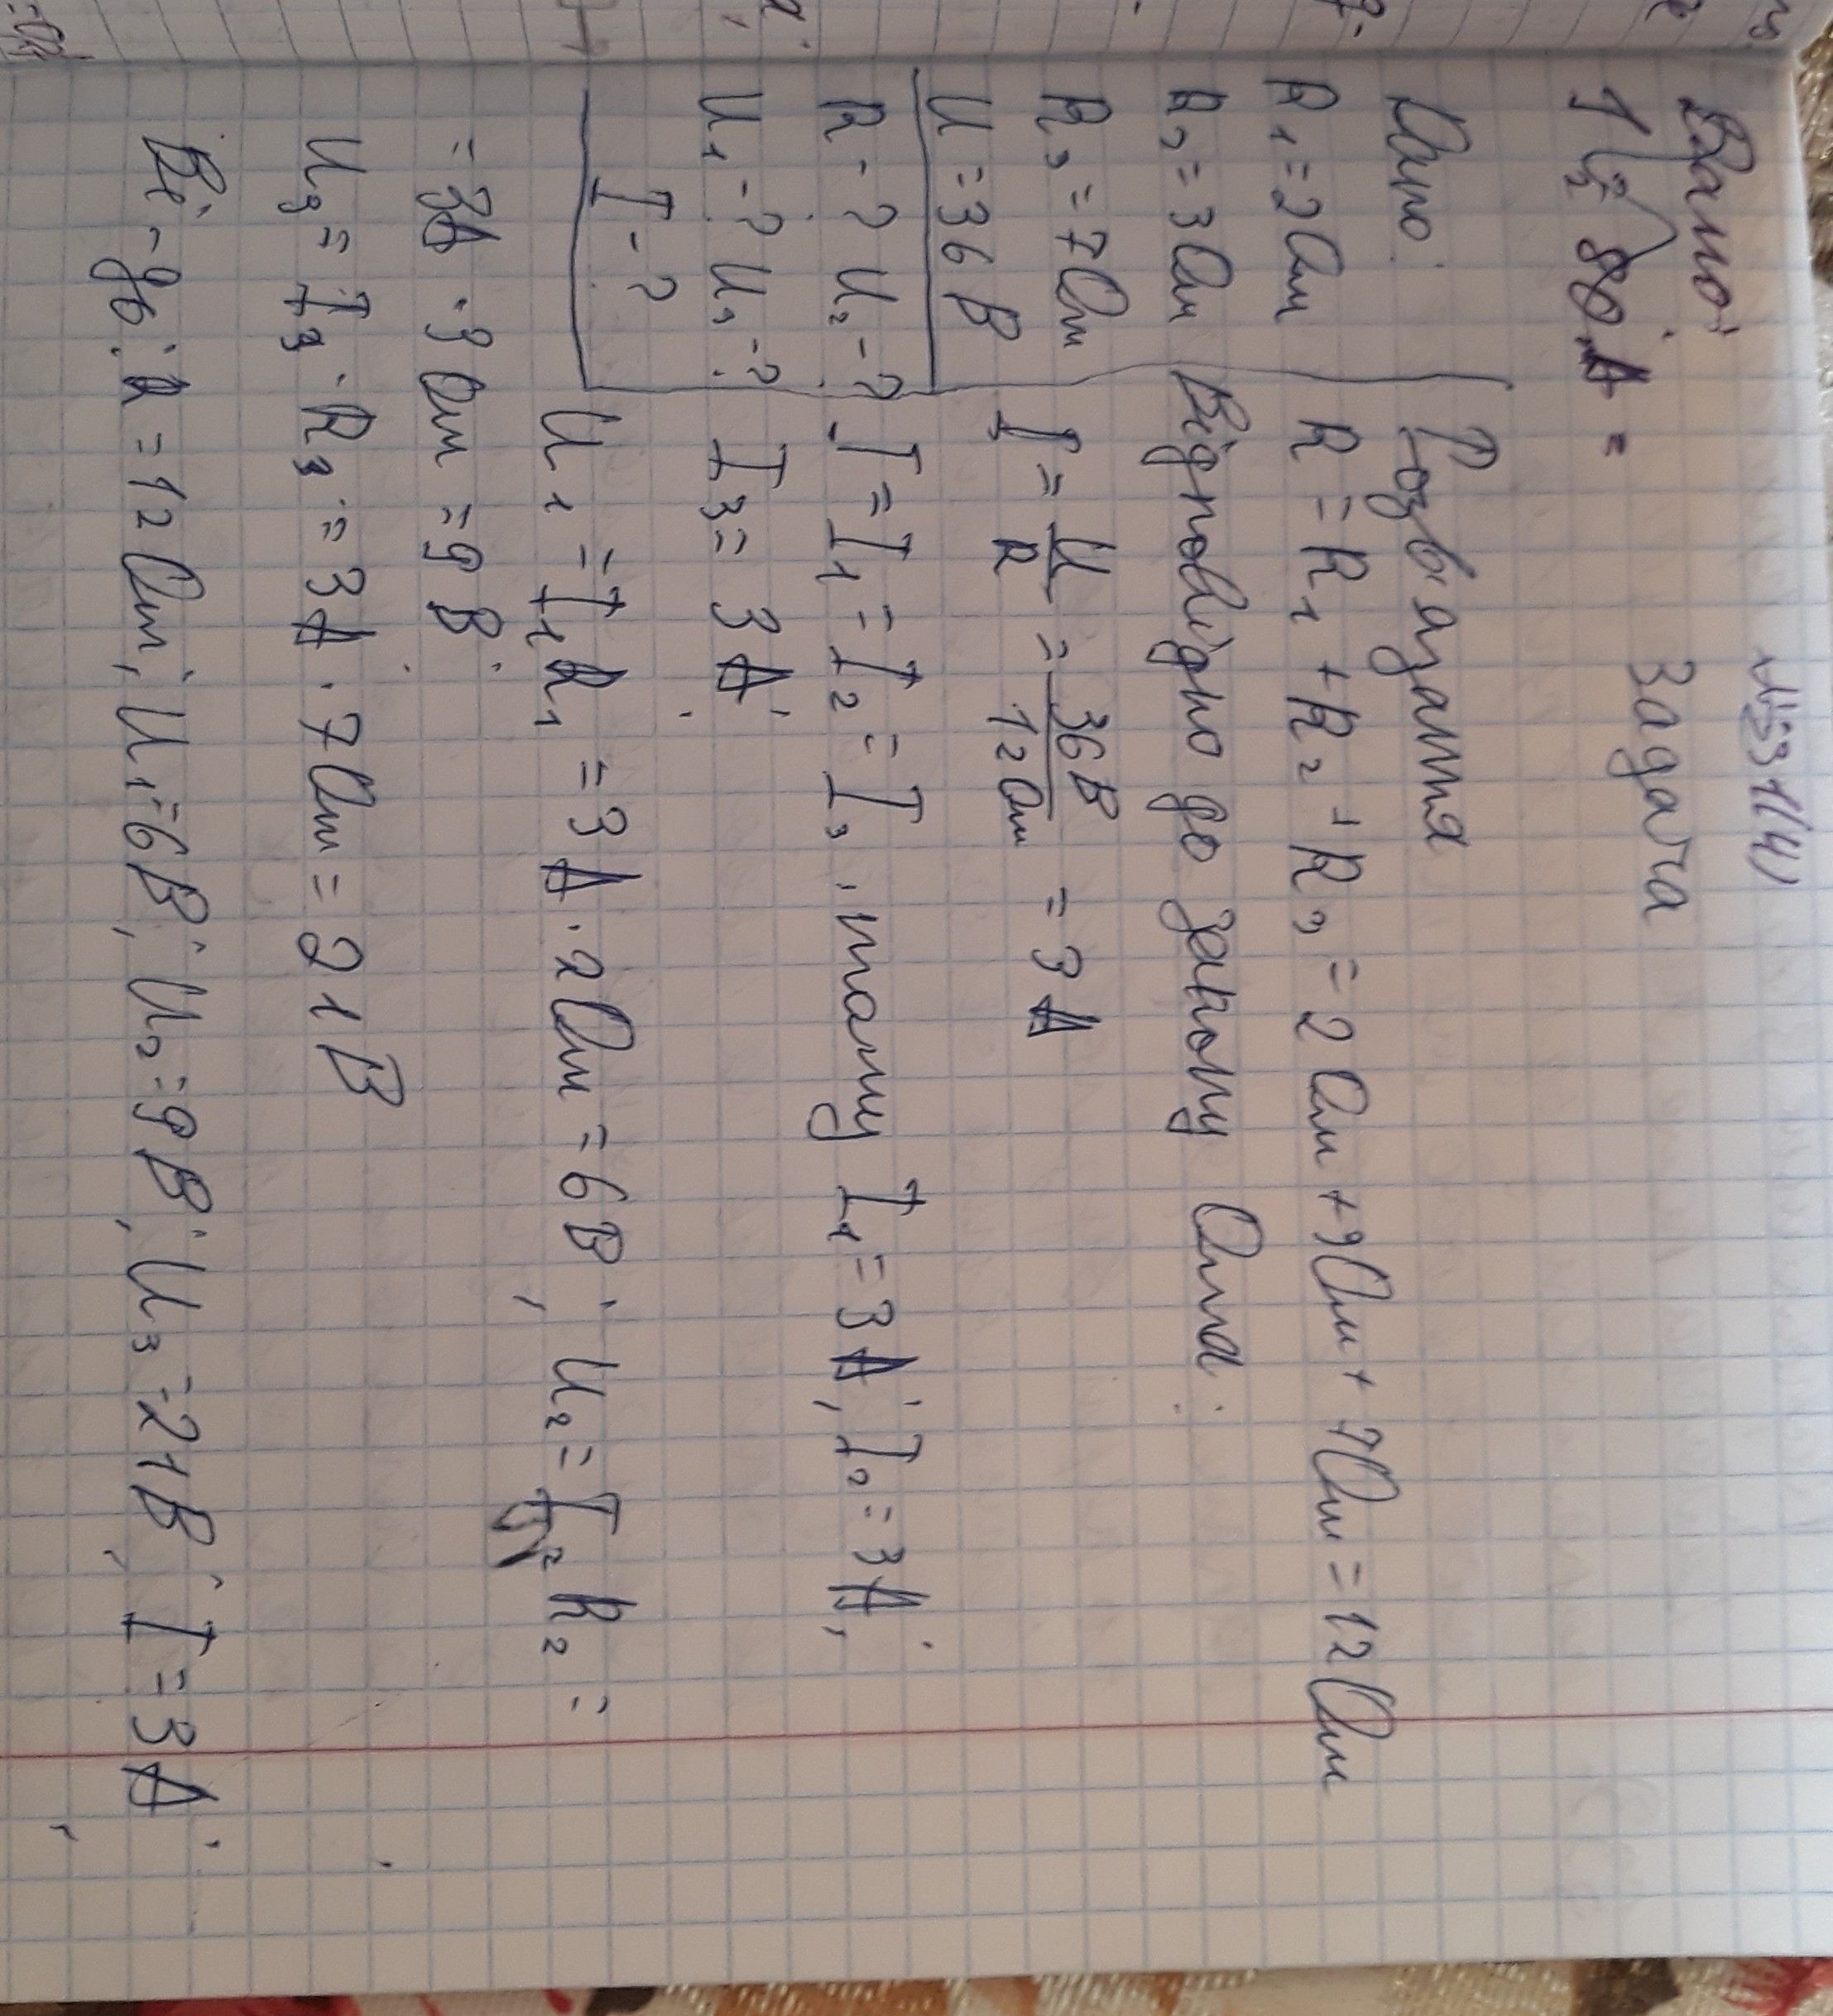 №31(4)
Задача
Дано:
R₁=2 Ом
R₂=3 Ом
R₃=7 Ом
U=36 В
R-? U₂-?
U₁-? U₃-?
I-?
Розв'язання
R=R₁+R₂+R₃=2 Ом+3 Ом+7 Ом=12 Ом
Відповідно до закону Ома:
I=U/R=36В/12 Ом=3 А
I=I₁=I₂=I₃, тому I₁=3 А; I₂=3 А;
I₃=3 А;
U₁=I₁R₁=3 А·2 Ом=6 В; U₂=I₂R₂=
=3А·3 Ом=9 В;
U₃=I₃·R₃=3 А·7 Ом=21 В
Ві-дь: R=12 Ом; U₁=6 В; U₂=9 В; U₃=21 В; I=3 А;